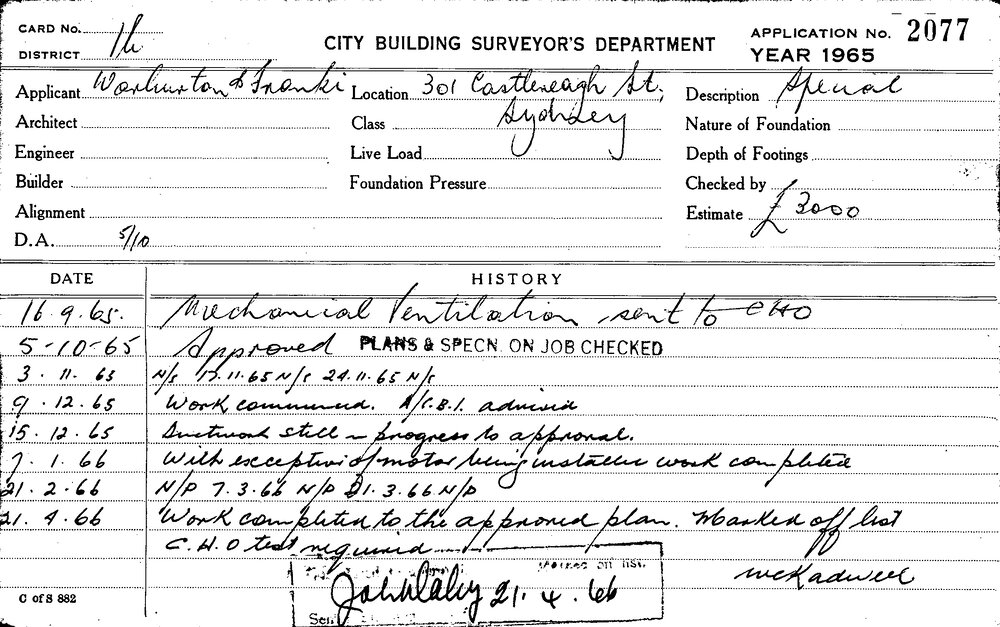 CARD No.
DISTRICT 1h
CITY BUILDING SURVEYOR'S DEPARTMENT
APPLICATION No. 2077
YEAR 1965
Applicant Warburton & Franki
Location 301 Castlereagh St,
Sydney
Description Special
Architect
Class
Nature of Foundation
Engineer
Live Load
Depth of Footings
Builder
Foundation Pressure
Checked by
Alignment
Estimate £3000
D.A. 5/10
DATE HISTORY
16.9.65. Mechanical Ventilation sent to CHO
5-10-65 Approved PLANS & SPECN. ON JOB CHECKED
3.11.65 N/S 17.11.65 N/S 24.11.65 N/S
9.12.65 Work commenced. A/C.B.I. advised
15.12.65 Ductwork still in progress to approval.
7.1.66 With exception of motor being installed work completed
21.2.66 N/P 7.3.66 N/P 21.3.66 N/P
21.4.66 Work completed to the approved plan. Marked off list
C.H.O test required
Marked off list.
John Daley 21.4.66
C of S 882